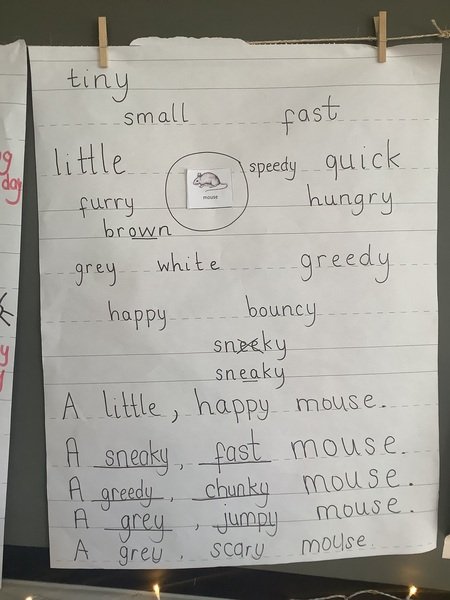 tiny
small fast
little speedy quick
mouse
furry hungry
brown
grey white greedy
happy bouncy
sneeky
sneaky
A little, happy mouse.
A sneaky, fast mouse.
A greedy, chunky mouse.
A grey, jumpy mouse.
A grey, scary mouse.
g
day
y